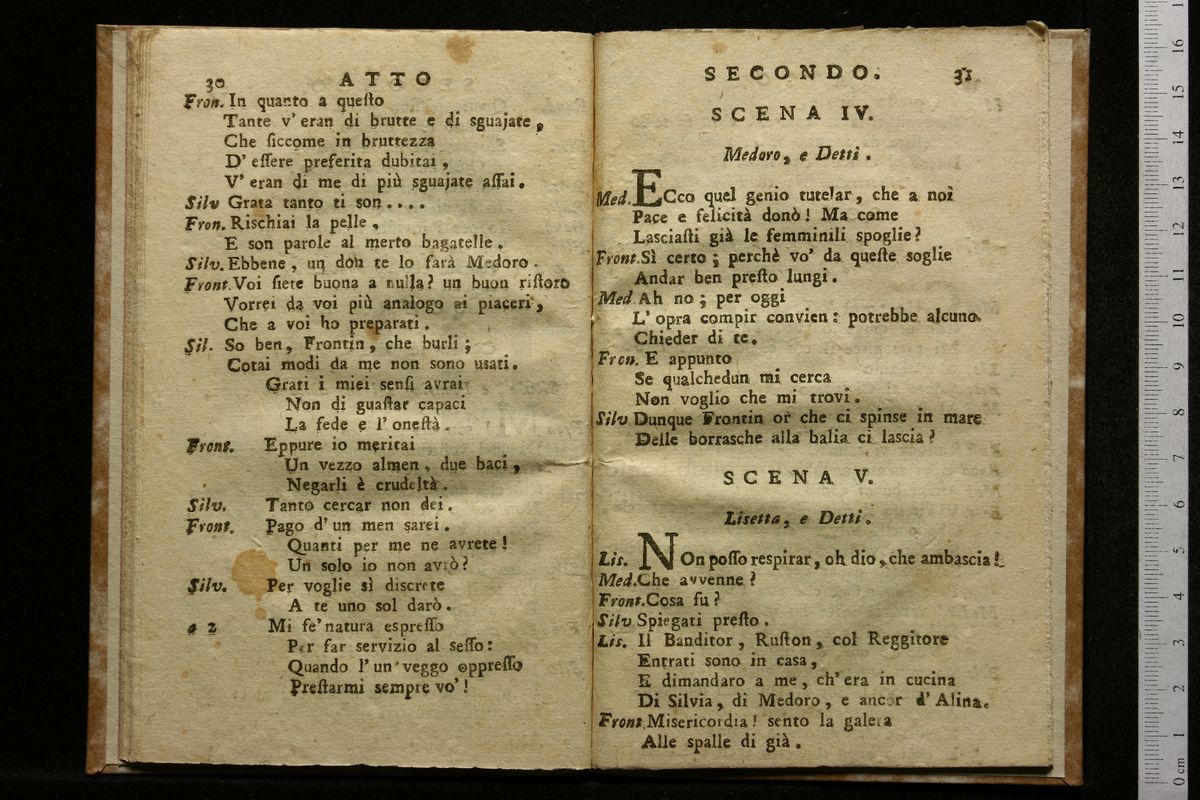 30 ATTO
Fron. In quanto a questo
Tante v' eran di brutte e di sguajate,
Che siccome in bruttezza
D' essere preferita dubitai,
V' eran di me di più sguajate assai.
Silv Grata tanto ti son....
Fron. Rischiai la pelle,
E son parole al merto bagatelle.
Silv. Ebbene, un don te lo farà Medoro.
Front. Voi siete buona a nulla? un buon ristoro
Vorrei da voi più analogo ai piaceri,
Che a voi ho preparati.
Sil. So ben, Frontin, che burli;
Cotai modi da me non sono usati.
Grati i miei sensi avrai
Non di guastar capaci
La fede e l' onestà.
Front. Eppure io meritai
Un vezzo almen, due baci,
Negarli è crudeltà.
Silv. Tanto cercar non dei.
Front. Pago d' un men sarei.
Quanti per me ne avrete!
Un solo io non avrò?
Silv. Per voglie sì discrete
A te uno sol darò.
a 2 Mi fe' natura espresso
Per far servizio al sesso:
Quando l' un veggo oppresso
Prestarmi sempre vo'!
SECONDO. 31
SCENA IV.
Medoro, e Detti.
Med. ECco quel genio tutelar, che a noi
Pace e felicità donò! Ma come
Lasciasti già le femminili spoglie?
Front. Sì certo; perchè vo' da queste soglie
Andar ben presto lungi.
Med Ah no; per oggi
L' opra compir convien: potrebbe alcuno
Chieder di te.
Fron. E appunto
Se qualchedun mi cerca
Non voglio che mi trovi.
Silv Dunque Frontin or che ci spinse in mare
Delle borrasche alla balia ci lascia?
SCENA V.
Lisetta, e Detti.
Lis. NOn posso respirar, oh dio, che ambascia!
Med. Che avvenne?
Front. Cosa fu?
Silv Spiegati presto.
Lis. Il Banditor, Ruston, col Reggitore
Entrati sono in casa,
E dimandaro a me, ch' era in cucina
Di Silvia, di Medoro, e ancor d' Alina.
Front Misericordia! sento la galera
Alle spalle di già.
0 cm 1 2 3 4 5 6 7 8 9 10 11 12 13 14 15 16